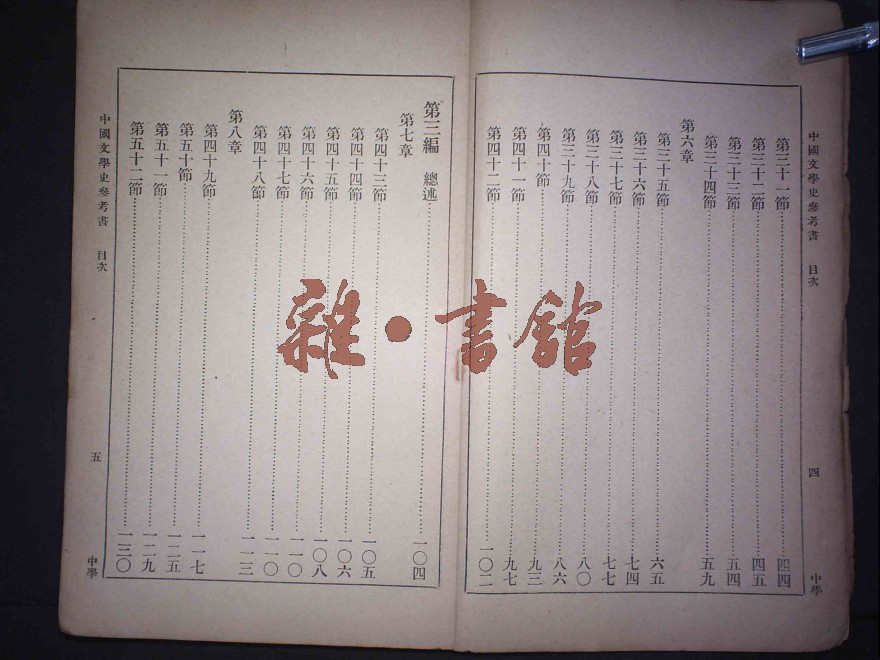 中國文學史參考書 目次
四
中學
第三十一節 四四
第三十二節 四五
第三十三節 五四
第三十四節 五九
第六章
第三十五節 六五
第三十六節 七四
第三十七節 七七
第三十八節 八〇
第三十九節 八六
第四十節 九三
第四十一節 九七
第四十二節 一〇二
第三編 總述 一〇四
第七章
第四十三節 一〇五
第四十四節 一〇六
第四十五節 一〇八
第四十六節 一一〇
第四十七節 一一〇
第四十八節 一一三
第八章
第四十九節 一一七
第五十節 一二五
第五十一節 一二九
第五十二節 一三〇
中國文學史參考書 目次
五
中學
雜·書館